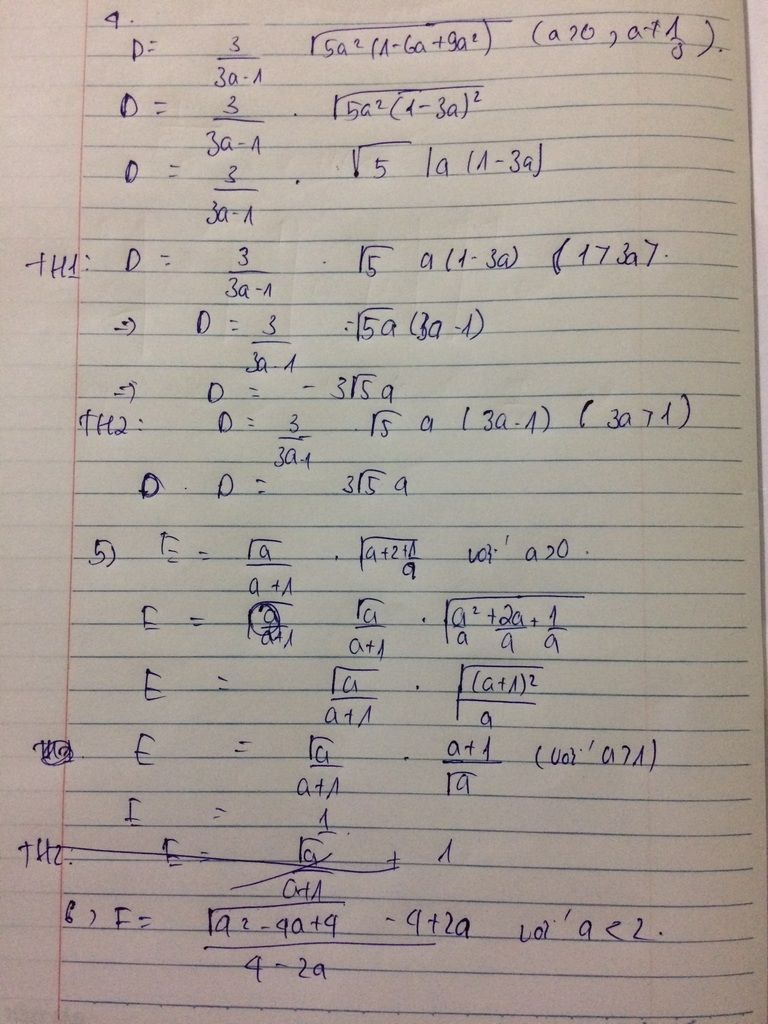 4.
D = 3/(3a-1) √(5a²(1-6a+9a²)) (a>0, a≠1/3).
D = 3/(3a-1) . √(5a²(1-3a)²)
D = 3/(3a-1) . √5 |a(1-3a)|
TH1: D = 3/(3a-1) . √5 a(1-3a) (1>3a>.
=> D = 3/(3a-1) . √5a(3a-1)
=> D = -3√5a
TH2: D = 3/(3a-1) . √5 a (3a-1) (3a>1)
D . D = 3√5 a
5) E = √a/(a+1) . √(a+2+1/a) với a>0.
E = √a/(a+1) . √(a²/a + 2a/a + 1/a)
E = √a/(a+1) . √((a+1)²/a)
E = √a/(a+1) . (a+1)/√a (với a>1)
E = 1
TH2: E = √a/(a+1) + 1
6) F = (√(a²-4a+4) -4+2a)/(4-2a) với a<2.